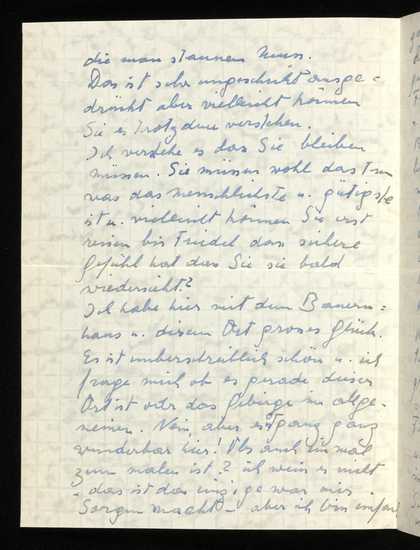 die man staunen muss.
Das ist sehr ungeschickt ausge=
drückt aber vielleicht können
Sie es trotzdem verstehen.
Ich verstehe es das Sie bleiben
müssen. Sie müssen wohl das tun
was das menschlichste u. gütigste
ist u. vielleicht können Sie erst
reisen bis Friedel das sichere
Gefühl hat das Sie sie bald
wiedersieht?
Ich habe hier mit dem Bauern=
haus u. diesem Ort grosses Glück.
Es ist unbeschreiblich schön u. ich
frage mich ob es gerade dieser
Ort ist oder das Gebirge im allge=
meinen. Nein aber es ist ganz ganz
wunderbar hier! Obs auch einmal
zum malen ist? ich weiss es nicht
- das ist das einzige was mir
Sorgen macht - aber ich bin einfach